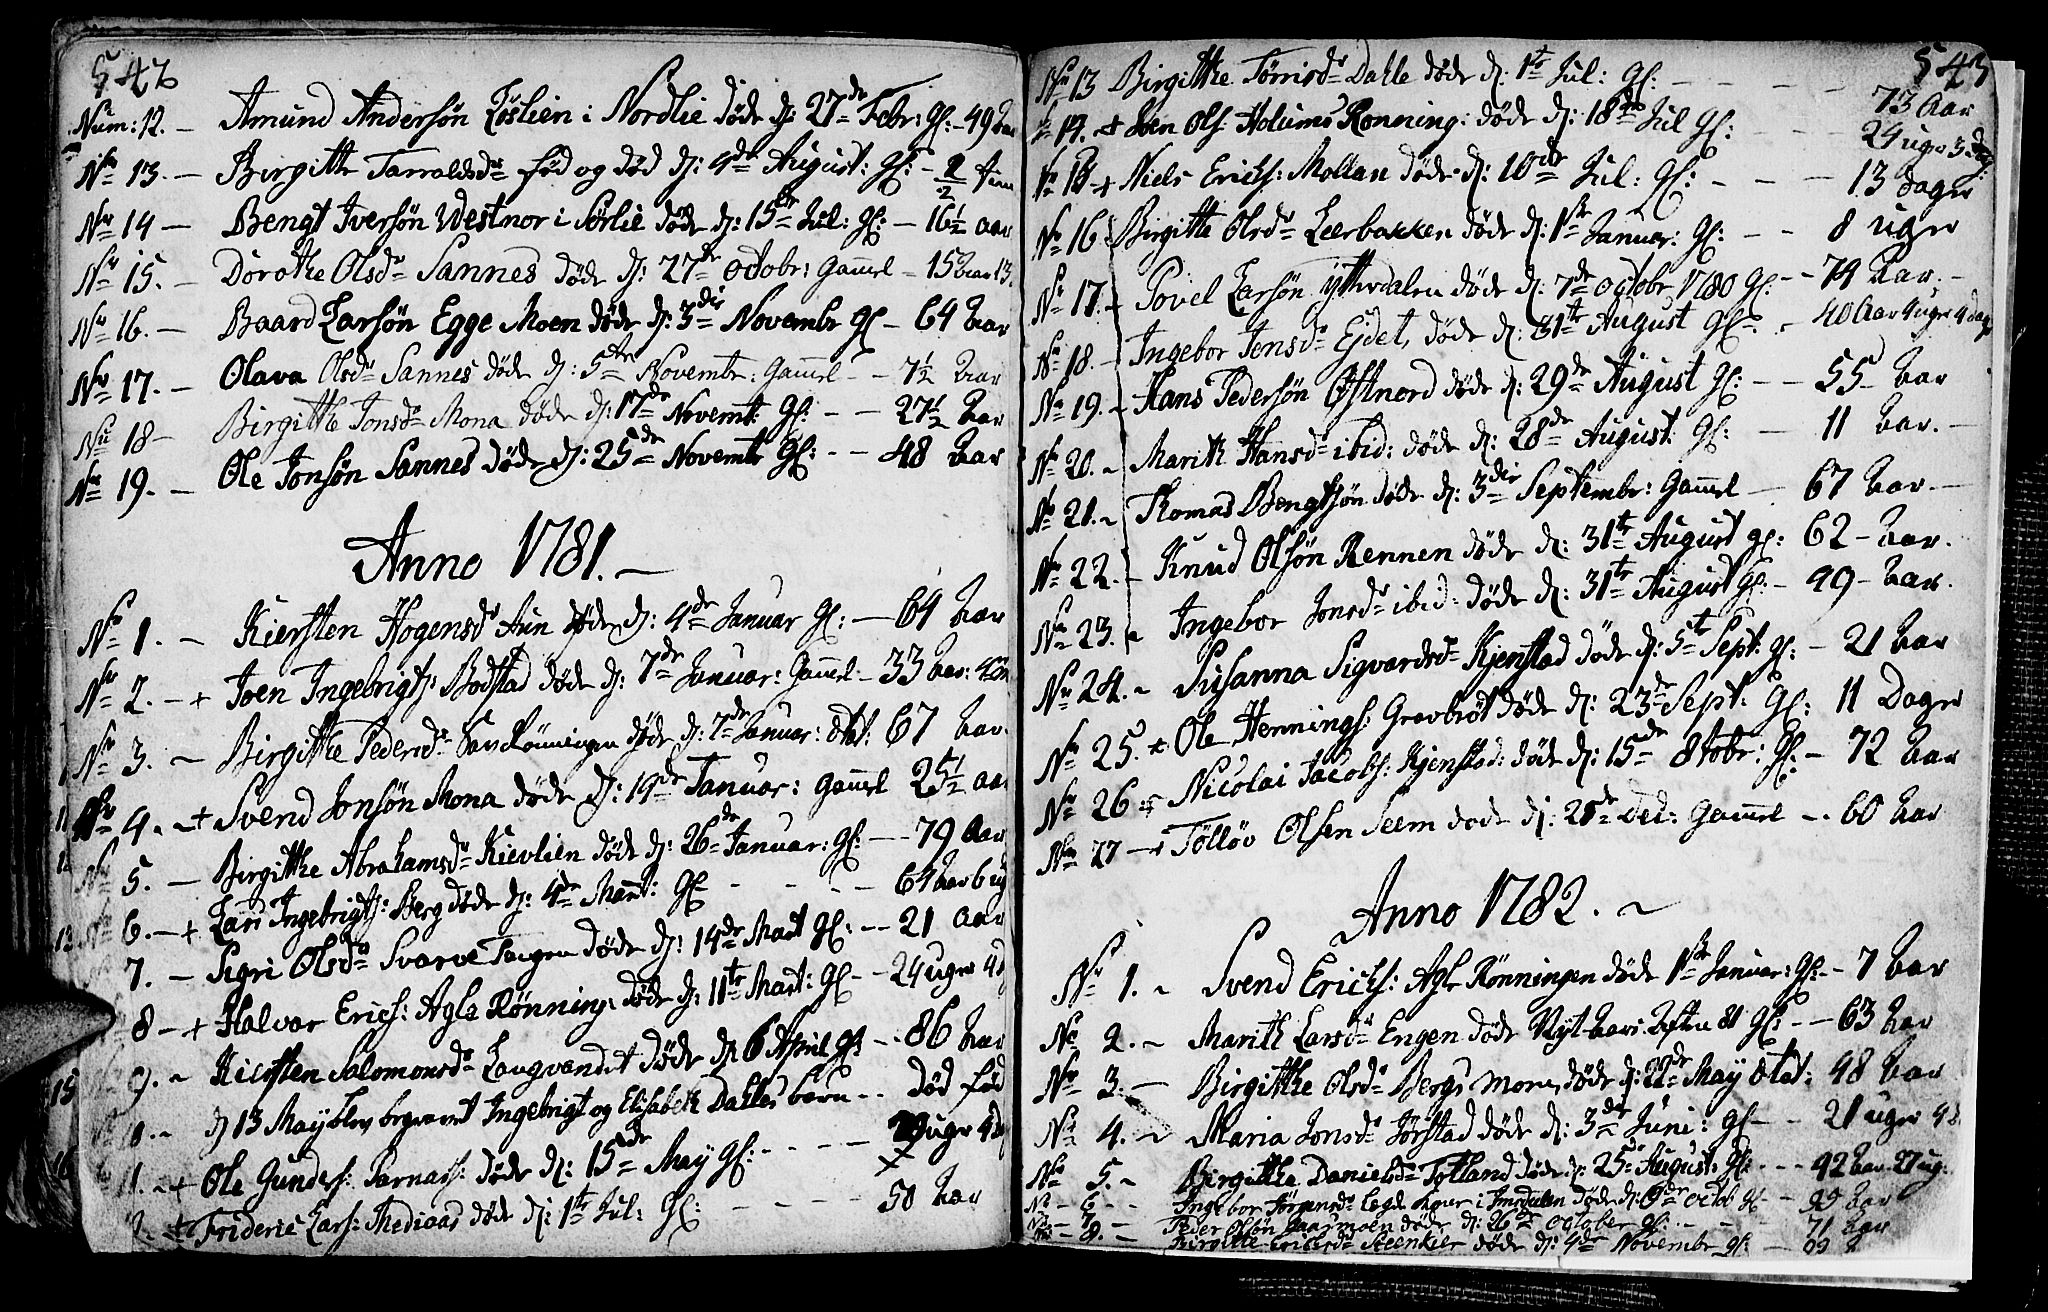 542
Num: 12. - Amund Andersøn Løslien i Nordlie døde d: 27de Febr: gl: - 49 Aar
No 13. - Birgitte Tarraldsdr fød og død d: 4de August: gl: - 1/2
No 14 - Bengt Iversøn Westnor i Sørlie døde d: 15de Jul: gl: - 16½ Aar
No 15. - Dorothe Olsdr Sannes døde d: 27de octobr: Gamel - 15 Aar 13.
No 16. - Baard Larsøn Egge Moen døde d: 3die Novembr gl - 64 Aar
No 17. - Olava Olsdr Sannes døde d: 5te Novembr: Gamel - - 7½ Aar
No 18 - Birgitthe Jonsdr Mona døde d: 17de Novemb: gl: - - 27½ Aar
No 19. - Ole Jonsøn Sannes døde d: 25de Novembr gl: - - 48 Aar
Anno 1781. -
No 1. - Kiersten Hogensdr Aun døde d: 4de Januar gl: - 64 Aar
No 2. - + Joen Ingebrigts: Bodstad døde d: 7de Januar: Gamel - 33 Aar:
No 3. - Birgitthe Pedersdr døde d: 7de Januar: ætat: 67 Aar.
No 4. - + Svend Jonsøn Mona døde d: 19de Januar: Gamel 25½ Aar
No 5. - Birgitthe Abrahamsdr Kievlien døde d: 26de Januar: gl: - - 79 Aar
No 6. - + Lars Ingebrigts: Berg døde d: 4de Mart: gl - - - - 64 Aar 6 ug
7. - Sigri Olsdr Svarve Taugen døde d: 14de Mart gl: - - 21 Aar
8 - + Halvar Erics: Agle Rønning: døde d: 11te Mart: gl - - 24 uger 4 d
9. - Kiersten Salomonsdr Langvandet døde d 6 April gl: - - 86 Aar
10. - d 13 May blev begravet Ingebrigt og Elisabeth Dahles barn - - Død fød
11. - + Ole Gunders: døde d: 15de May gl: - - - - uger 4 d
12. + Frideric Lars: døde d: 1te Jul: gl: - - - 50 Aar
543
No 13 Birgitthe Tørrisdr Dahle døde d: 1te Jul: gl: - - - - 73 Aar
14. + Olss: Holums Rønning: døde d: 18de Jul gl: - - - 24 uger 3 dag:
No 15 + Niels Erichs: Moltan døde d: 10de Jul: gl: - - - 13 dager
No 16 Birgitte Olsdr Leerbakken døde d: 1te Januar: gl: - - 8 uger
No 17. - Povel Larsøn Ytterdalen døde d: 7de octobr 1780 gl: - - 74 Aar. -
No 18. - Ingebor Jensdr Ejdet, døde d: 31te August gl: - 40 Aar 4 uger 4 dage
No 19. - Hans Pedersøn Østnord døde d: 29de August gl: - - 55 Aar
No 20. - Marith Hansdr ibid: døde d: 28de August gl: - 11 Aar. -
No 21. - Thomas Bengtsøn døde d: 3die Septembr: Gamel - 67 Aar. -
No 22. - Knud Olsøn Rennen døde d: 31te August gl: 62 - Aar.
No 23. - Ingebor Jonsdr ibid: døde d: 31te August gl: - 49 - Aar.
No 24. - Susanna Sigvardsdr Kjenstad døde d: 5te Sept: gl: - 21 Aar
No 25. + Ole Hennings: Grevbrøt døde d: 23de Sept: gl: 11 Dager
No 26 + Nicolai Jacobs: Kjenstad: døde d: 15de 8tobr: gl: - 72 Aar
No 27 - + Tølløv Olsen Seem døde d: 28de Dec: Gamel - . 60 Aar
Anno 1782. -
No 1. - Svend Erichs: Agle Rønningen døde 1te Januar: gl: - - 7 Aar
No 2. - Marith Larsdr Engen døde Nyt-Aars Aften 81 gl: - - 63 Aar
No 3. - Birgitthe Olsdr Bergs Moen, døde d: 22de May ætat: 48 Aar
No 4. - Maria Jonsdr Jørstad døde d: 3die Juni: gl - - 21 uger 4 d.
No 5. - Birgitthe Danielsdr Totland døde d: 25de August: gl: - - - 42 Aar. 27 ug.
No - 6 - - Ingebor Jørgensdr i Imsdalen døde d: octob gl - - Aar
No - 7 - Peder Olsøn døde d: 26de October gl: - - - 71 Aar
No - 8. - Birgitte Ericksdr Steenkier døde d: 4de Novembr gl: -